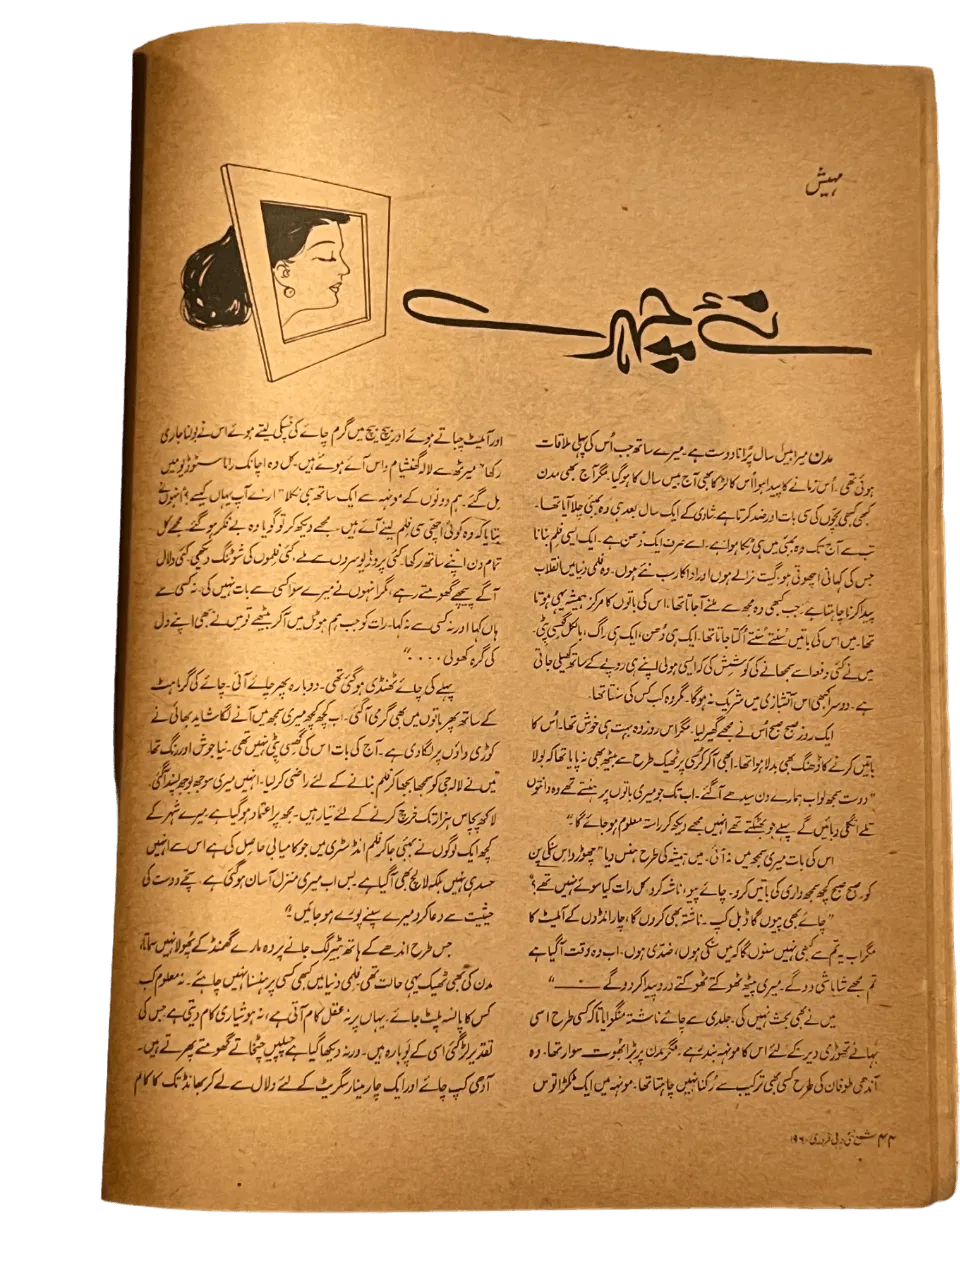 مہیش
نئے چہرے
مدن میرا بیس سال پُرانا دوست ہے۔ میرے ساتھ جب اُس کی پہلی ملاقات
ہوئی تھی۔ اُس زمانے کا پیدا ہوا اُس کا لڑکا بھی آج بیس سال کا ہو گیا۔ مگر آج بھی مدن
کبھی کبھی بچّوں کی سی بات اور ضد کرتا ہے شادی کے ایک سال بعد ہی وہ بمبئی چلا آیا تھا۔
تب سے آج تک وہ بمبئی میں ہی ٹِکا ہوا ہے۔ اسے صرف ایک دُھن ہے۔ ایک ایسی فلم بنانا
جس کی کہانی اچھوتی ہو، گیت نرالے ہوں اور اداکار سب نئے ہوں۔ وہ فلمی دنیا میں انقلاب
پیدا کرنا چاہتا ہے۔ جب کبھی وہ مجھ سے ملنے آ جاتا تھا۔ اس کی باتوں کا مرکز ہمیشہ یہی ہوتا
تھا۔ میں اس کی باتیں سُنتے سُنتے اُکتا جاتا تھا۔ ایک ہی دُھن، ایک ہی راگ، بالکل گھِسی پِٹی۔
میں نے کئی دفعہ اسے سمجھانے کی کوشش کی کہ ایسی ہولی اپنے ہی روپے کے ساتھ کھیلی جاتی
ہے۔ دوسرا کبھی اس آتشبازی میں شریک نہ ہو گا۔ مگر وہ کب کس کی سنتا تھا۔
ایک روز صبح صبح اُس نے مجھے گھیر لیا۔ مگر اس روز وہ بہت ہی خوش تھا۔ اُس کا
باتیں کرنے کا ڈھنگ بھی بدلا ہوا تھا۔ ابھی آکر کُرسی پر ٹھیک طرح سے بیٹھ بھی نہ پایا تھا کہ بولا
"دوست سمجھ لو اب ہمارے دن سیدھے آ گئے۔ اب تک جو میری باتوں پر ہنستے تھے وہ دانتوں
تلے اُنگلی دبائیں گے پہلے جو بھٹکتے تھے انہیں مجھے دیکھ کر راستہ معلوم ہو جائے گا"۔
اس کی بات میری سمجھ میں نہ آئی۔ میں ہمیشہ کی طرح ہنس دیا "چھوڑو اس سنکی پن
کو، صبح صبح کچھ سمجھداری کی باتیں کرو۔ چائے پیو، ناشتہ کرو، کل رات کیا سوئے نہیں تھے؟"
"چائے بھی پیوں گا ڈبل کپ۔ ناشتہ بھی کروں گا، چار انڈوں کے آملیٹ کا
مگر اب یہ تم سے کبھی نہیں سنوں گا کہ میں سنکی ہوں، ضدّی ہوں۔ اب وہ وقت آ گیا ہے
تم مجھے شاباشی دو گے۔ میری پیٹھ ٹھوکتے ٹھوکتے درد پیدا کر دو گے ـــــــ"
میں نے بھی بحث نہیں کی۔ جلدی سے چائے ناشتہ منگوایا تاکہ کسی طرح اسی
بہانے تھوڑی دیر کے لئے اس کا مونہہ بند رہے۔ مگر مدن پر بڑا بھوت سوار تھا۔ وہ
آندھی طوفان کی طرح کسی بھی ترکیب سے رُکنا نہیں چاہتا تھا۔ مونہہ میں ایک ٹکڑا توس
اور آملیٹ چباتے ہوئے اور بیچ بیچ میں گرم چائے کی چُسکی لیتے ہوئے اس نے بولنا جاری
رکھا "میرٹھ سے لالہ گھنشیام داس آئے ہوئے ہیں۔ کل وہ اچانک راما سٹوڈیو میں
مِل گئے۔ ہم دونوں کے مونہہ سے ایک ساتھ ہی نکلا "ارے آپ یہاں کیسے؟" انہوں نے
بتایا کہ وہ کوئی اچھی سی فلم لینے آئے ہیں۔ مجھے دیکھ کر تو گویا وہ بے فکر ہو گئے۔ مجھے کل
تمام دن اپنے ساتھ رکھا۔ کئی پروڈیوسروں سے ملے، کئی فلموں کی شوٹنگ دیکھی، کئی دلال
آگے پیچھے گھومتے رہے، مگر انہوں نے میرے سوا کسی سے بات نہیں کی۔ نہ کسی سے
ہاں کہا اور نہ کسی سے نہ کہا۔ رات کو جب ہم ہوٹل میں آکر بیٹھے تو میں نے بھی اپنے دل
کی گرہ کھولی ۔۔۔۔"
پہلے کی چائے ٹھنڈی ہو گئی تھی۔ دوبارہ پھر چائے آئی۔ چائے کی گرماہٹ
کے ساتھ پھر باتوں میں بھی گرمی آ گئی۔ اب کچھ کچھ میری سمجھ میں آنے لگا شاید بھائی نے
کوڑی داؤں پر لگا دی ہے۔ آج کی بات اس کی گھِسی پٹی نہیں تھی۔ نیا جوش اور رنگ تھا
"میں نے لالہ جی کو سمجھا بجھا کر فلم بنانے کے لئے راضی کر لیا۔ انہیں میری سوجھ بوجھ پسند آ گئی۔
لاکھ پچاس ہزار تک خرچ کرنے کے لئے تیار ہیں۔ مجھ پر اعتماد ہو گیا ہے۔ میرے شہر کے
کچھ ایک لوگوں نے بمبئی جا کر فلم انڈسٹری میں جو کامیابی حاصل کی ہے اس سے انہیں
حسد ہی نہیں بلکہ لالچ بھی آ گیا ہے۔ بس اب میری منزل آسان ہو گئی ہے۔ سچّے دوست کی
حیثیت سے دعا کرو میرے سپنے پورے ہو جائیں"۔
جس طرح اندھے کے ہاتھ بٹیر لگ جانے پر وہ مارے گھمنڈ کے پُھولا نہیں سماتا،
مدن کی بھی ٹھیک یہی حالت تھی۔ فلمی دنیا میں کبھی کسی پر ہنسنا نہیں چاہئے۔ نہ معلوم کب
کس کا پانسہ پلٹ جائے۔ یہاں پر نہ عقل کام آتی ہے، نہ ہوشیاری کام دیتی ہے جس کی
تقدیر لڑ گئی اسی کے پَو بارہ ہیں۔ ورنہ دیکھا گیا ہے چپلیں چٹخاتے گھومتے پھرتے ہیں۔
آدھی کپ چائے اور ایک چار مینار سگریٹ کے لئے دلال سے لے کر بھانڈ تک کا کام
۴۴ شمع نئی دہلی فروری ۱۹۶۰